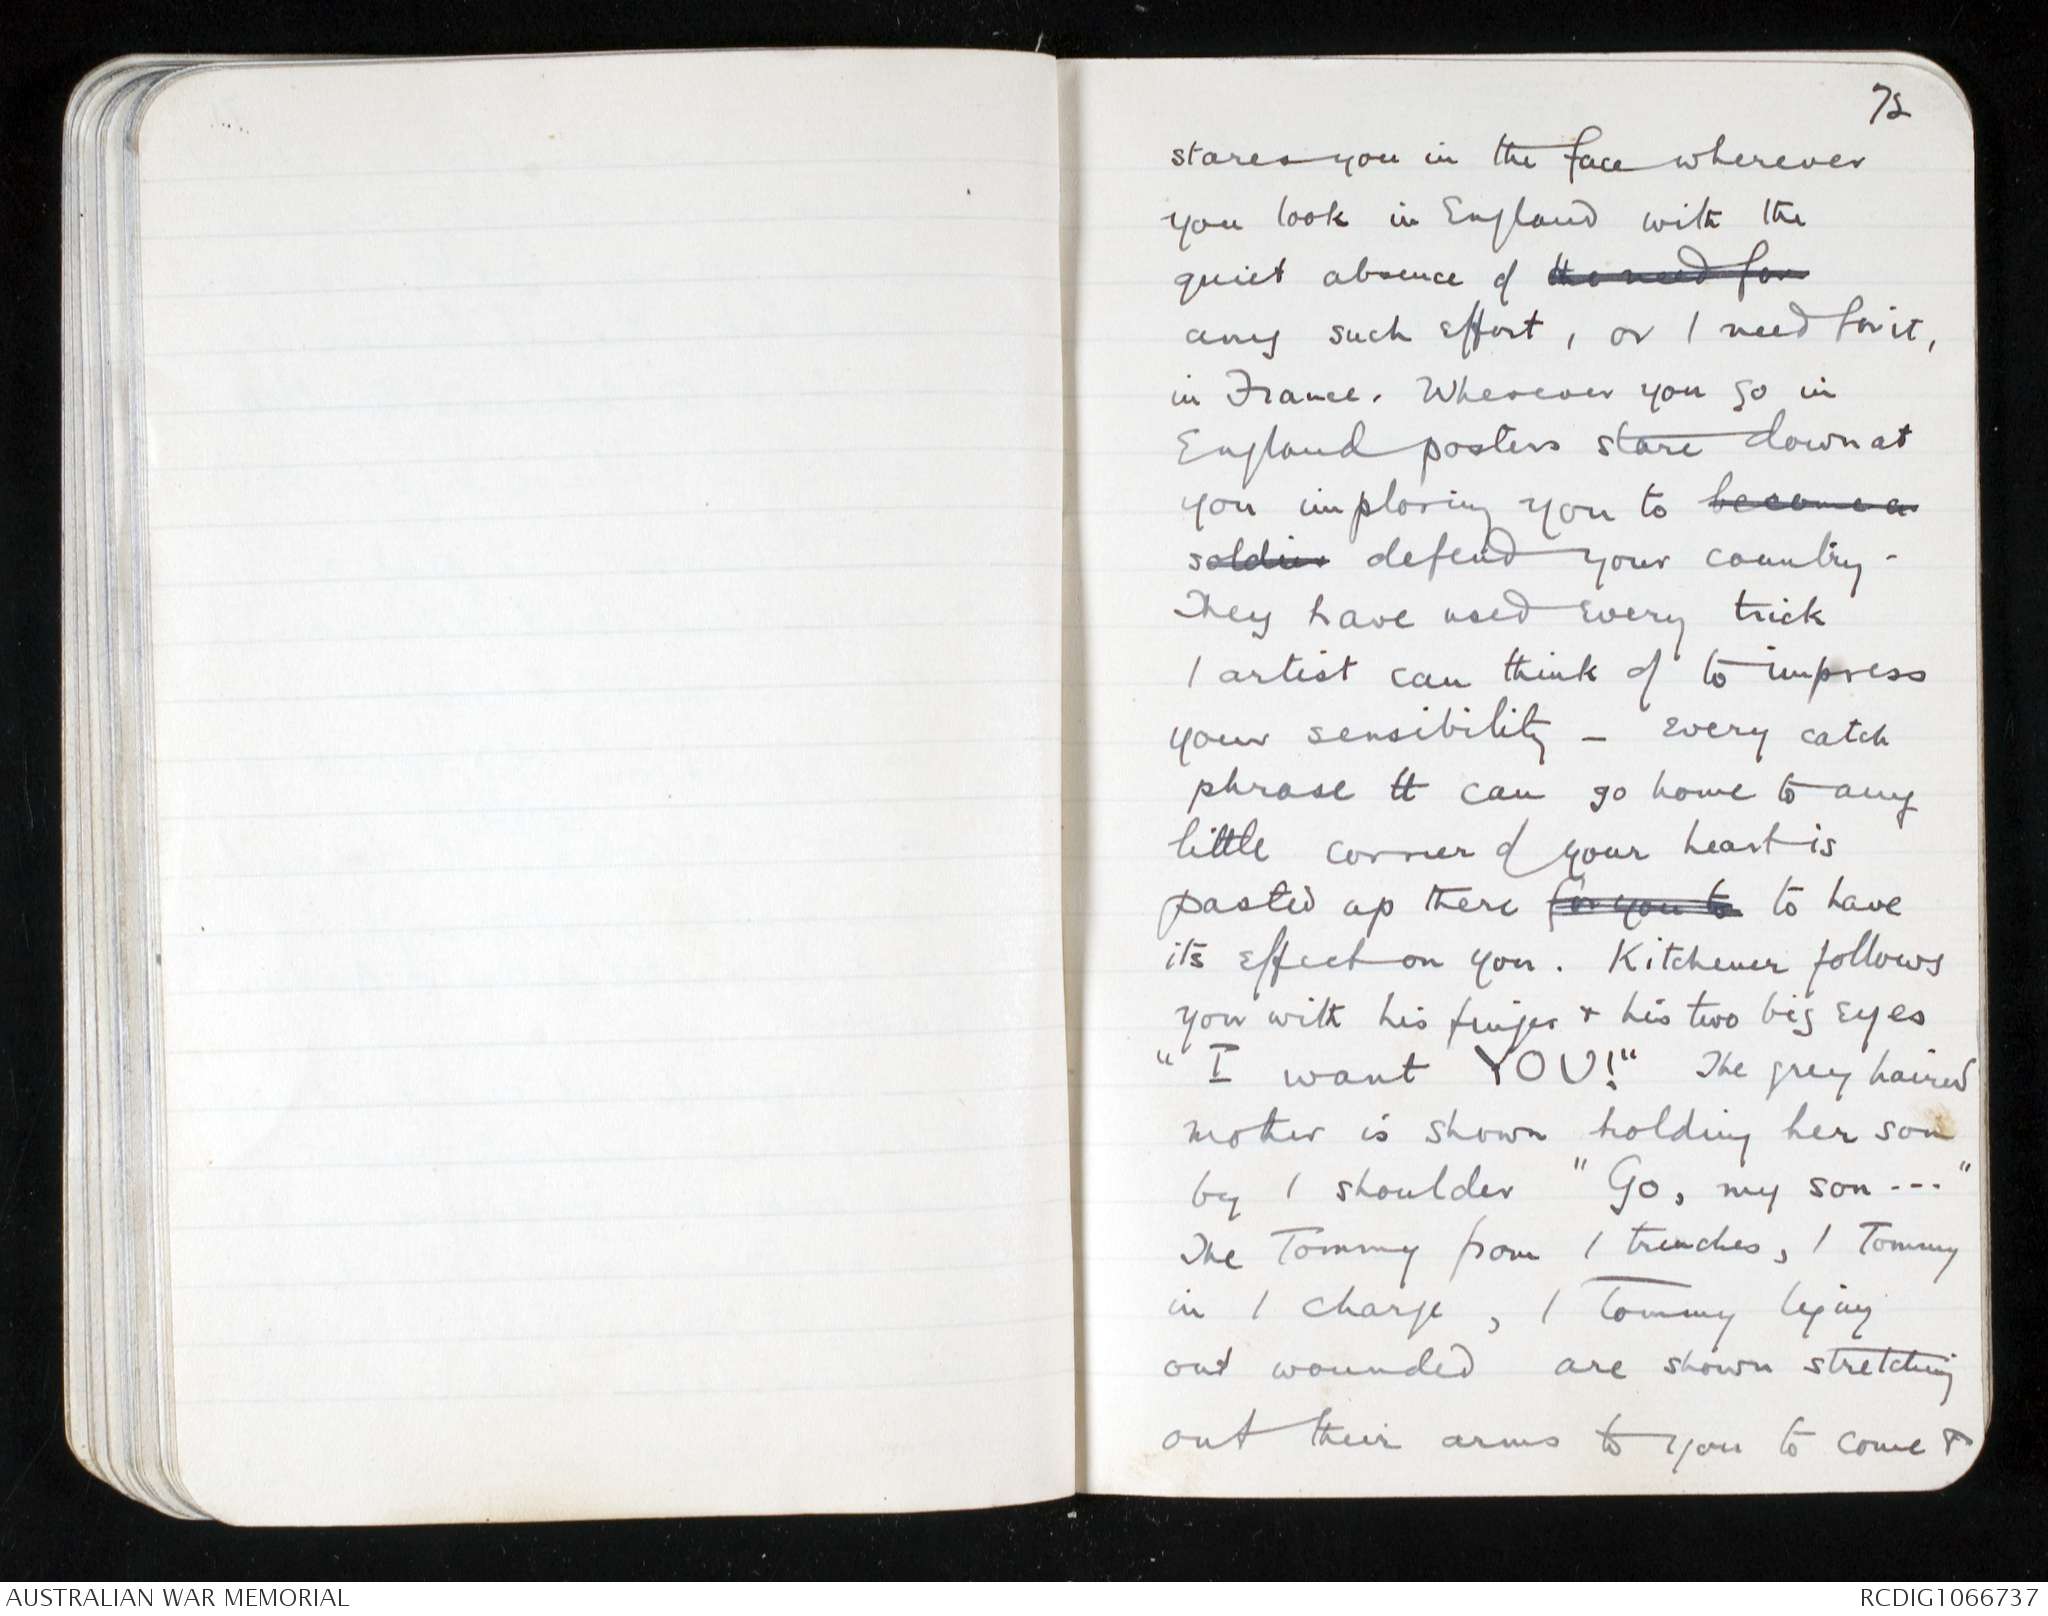 72
stares you in the face wherever
you look in England with the
quiet absence of the need for
any such effort, or / need for it,
in France. Wherever you go in
England posters stare down at
you imploring you to become a
soldier defend your country -
They have used every trick
/ artist can think of to impress
your sensibility - every catch
phrase tt can go home to any
little corner of your heart is
pasted up there for you to to have
its effect on you. Kitchener follows
you with his finger & his two big eyes
"I want YOU!" The grey haired
mother is shown holding her son
by / shoulder "Go, my son ---"
The Tommy from / trenches, / Tommy
in / charge, / Tommy lying
out wounded are shown stretching
out their arms to you to come &
AUSTRALIAN WAR MEMORIAL
RCDIG1066737